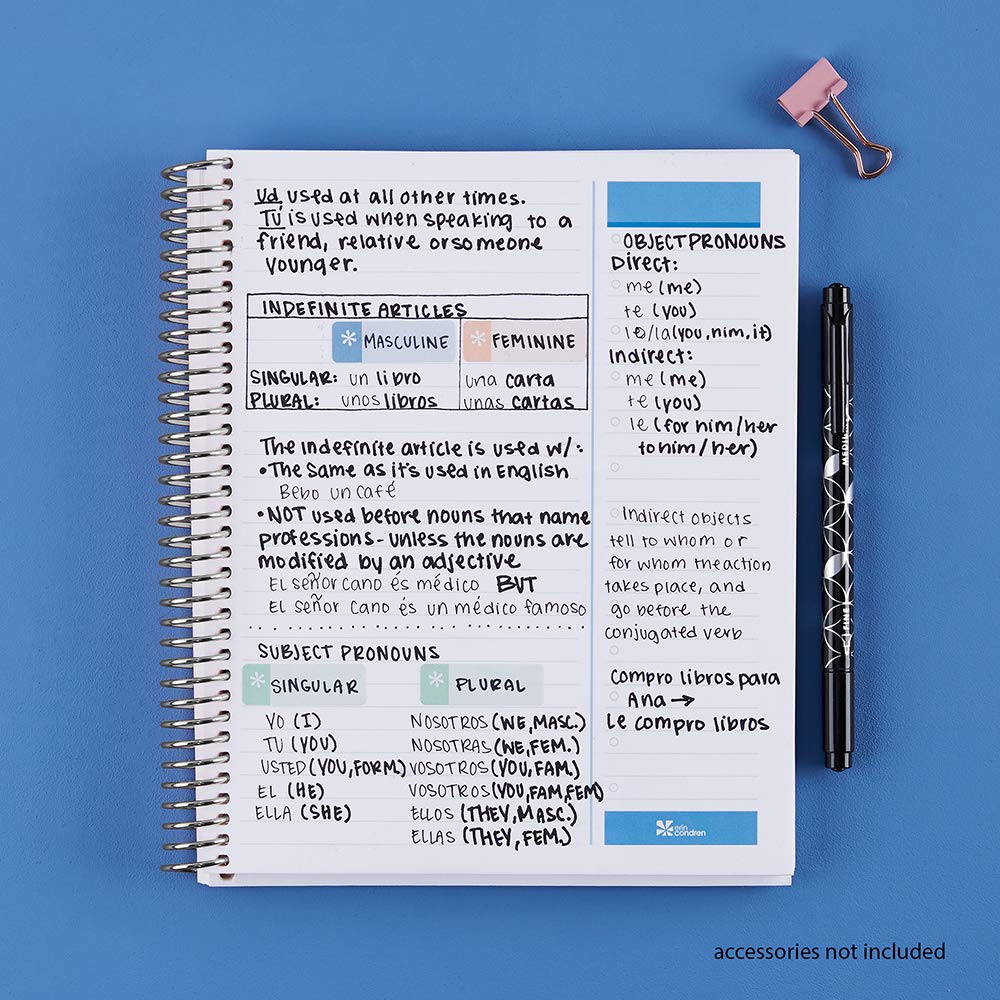 Ud used at all other times.
TÚ is used when speaking to a
friend, relative or someone
younger.
INDEFINITE ARTICLES
* MASCULINE * FEMININE
SINGULAR: un libro una carta
PLURAL: unos libros unas cartas
The indefinite article is used w/:
•The same as it's used in English
Bebo un café
•NOT used before nouns that name
professions - unless the nouns are
modified by an adjective
El señor cano és médico BUT
El señor Cano és un médico famoso
SUBJECT PRONOUNS
* SINGULAR * PLURAL
YO (I) NOSOTROS (WE, MASC.)
TÚ (YOU) NOSOTRAS (WE, FEM.)
USTED (YOU, FORM.) VOSOTROS (YOU, FAM.)
EL (HE) VOSOTROS (YOU, FAM, FEM)
ELLA (SHE) ELLOS (THEY, MASC.)
ELLAS (THEY, FEM.)
OBJECT PRONOUNS
Direct:
me (me)
te (you)
lo/la (you, him, it)
Indirect:
me (me)
te (you)
le (for him/her
to him/her)
Indirect objects
tell to whom or
for whom the action
takes place, and
go before the
conjugated verb
Compro libros para
Ana →
Le compro libros
erin
condren
FINE
accessories not included